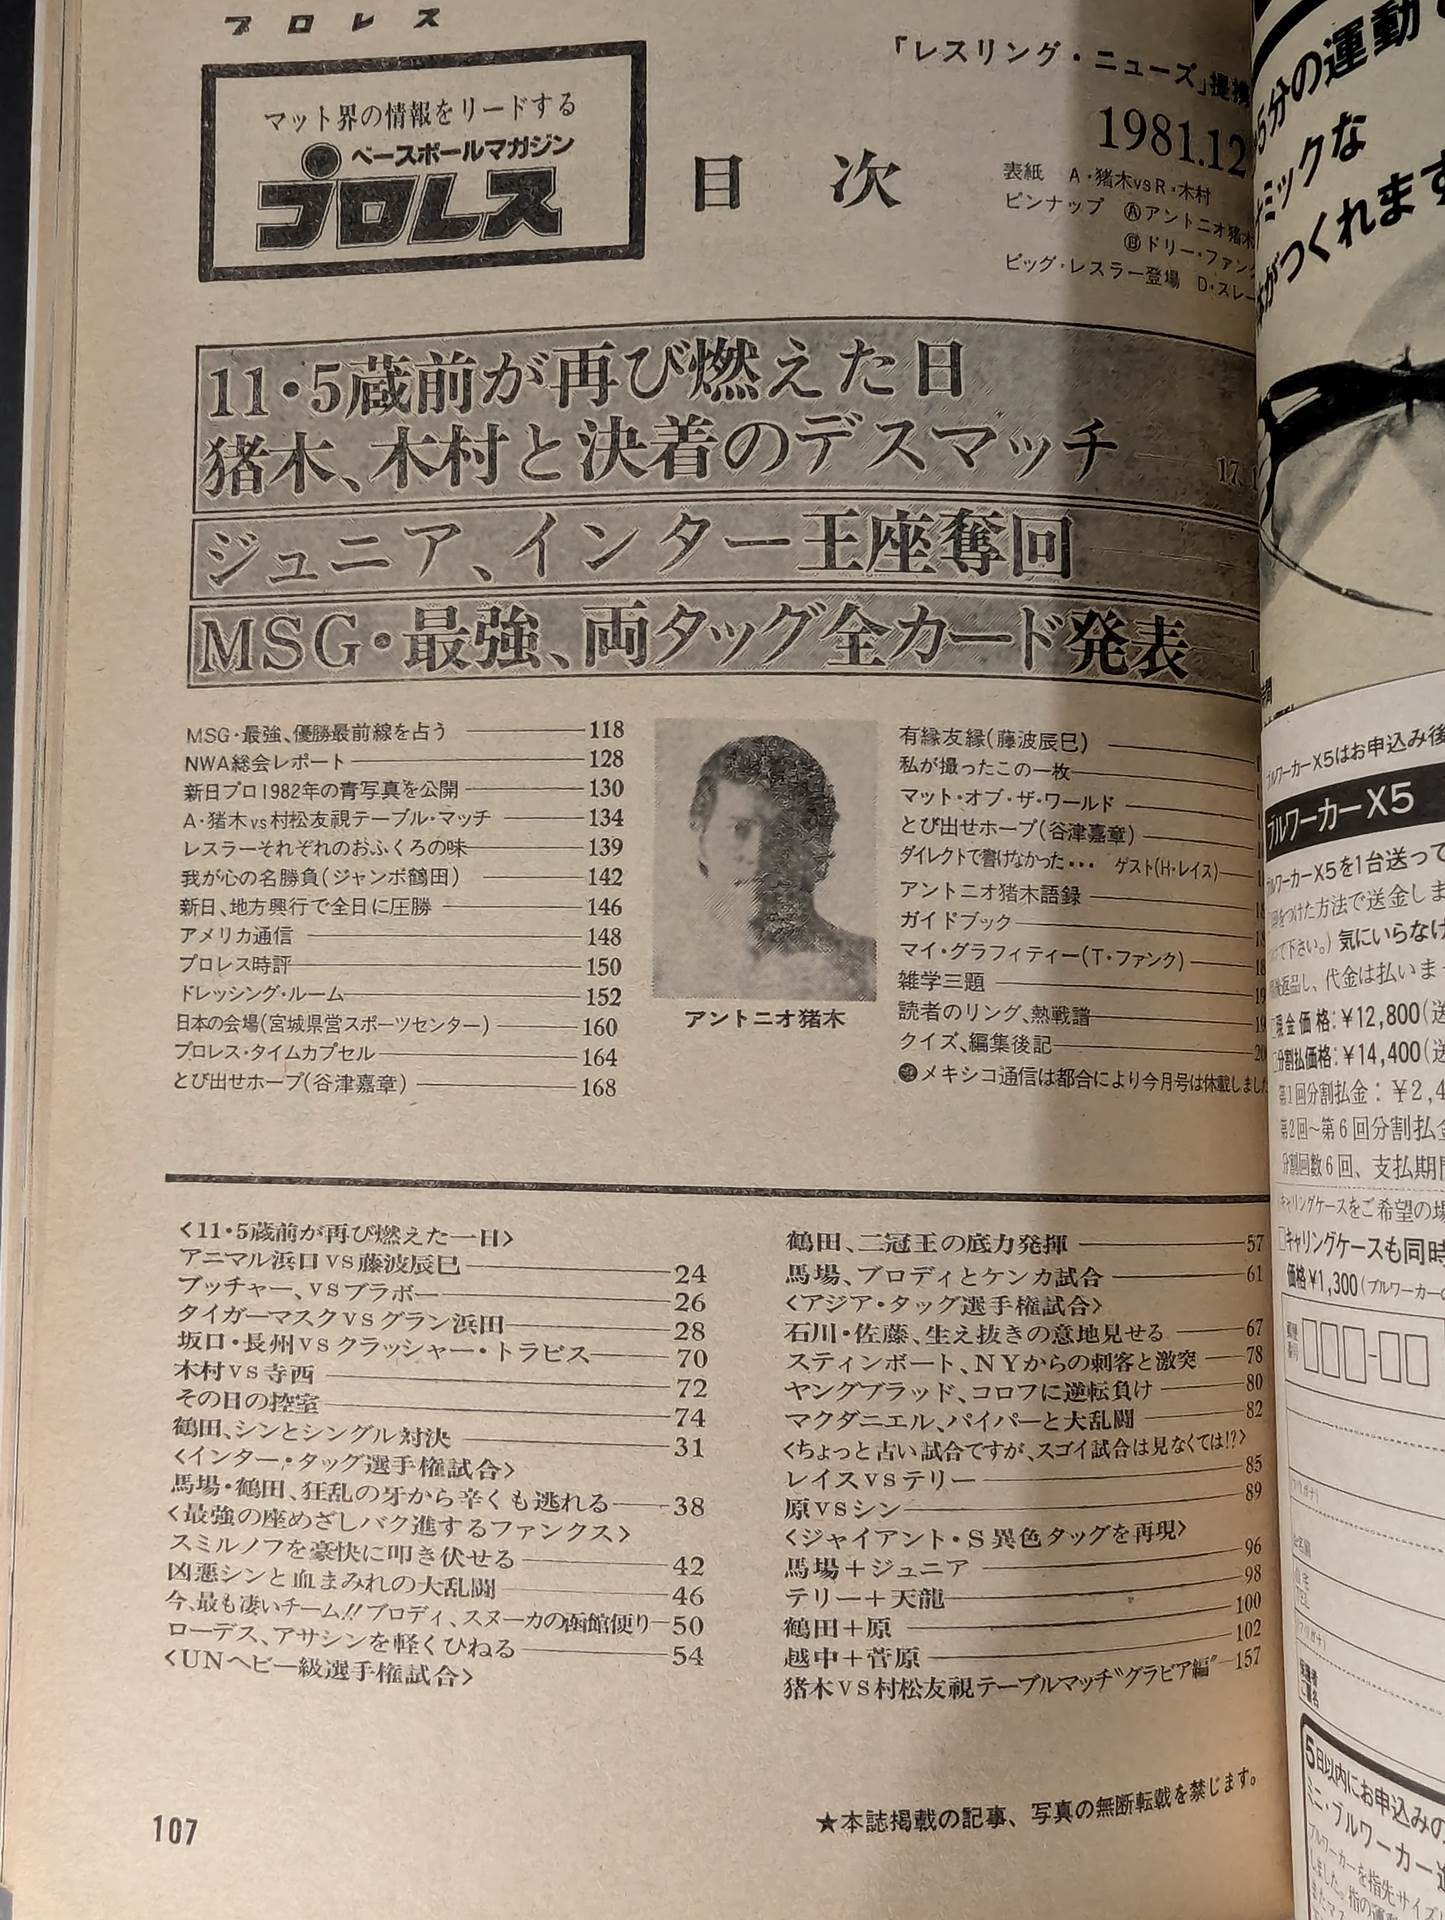 プロレス
マット界の情報をリードする
ベースボールマガジン
プロレス
目次
「レスリング・ニューズ」提携
1981.12
表紙 A・猪木vsR・木村
ピンナップ Ⓐアントニオ猪木
Ⓑドリー・ファンク
ビッグ・レスラー登場 D・スレー
11・5蔵前が再び燃えた日
猪木、木村と決着のデスマッチ 17.
ジュニア、インター王座奪回
MSG・最強、両タッグ全カード発表
MSG・最強、優勝最前線を占う 118
NWA総会レポート 128
新日プロ1982年の青写真を公開 130
A・猪木vs村松友視テーブル・マッチ 134
レスラーそれぞれのおふくろの味 139
我が心の名勝負(ジャンボ鶴田) 142
新日、地方興行で全日に圧勝 146
アメリカ通信 148
プロレス時評 150
ドレッシング・ルーム 152
日本の会場(宮城県営スポーツセンター) 160
プロレス・タイムカプセル 164
とび出せホープ(谷津嘉章) 168
アントニオ猪木
有縁友縁(藤波辰巳)
私が撮ったこの一枚
マット・オブ・ザ・ワールド
とび出せホープ(谷津嘉章)
ダイレクトで書けなかった… ゲスト(H・レイス)
アントニオ猪木語録
ガイドブック
マイ・グラフィティー(T・ファンク)
雑学三題
読者のリング、熱戦譜
クイズ、編集後記
メキシコ通信は都合により今月号は休載しました
<11・5蔵前が再び燃えた一日>
アニマル浜口vs藤波辰巳 24
ブッチャー、vsブラボー 26
タイガーマスクvsグラン浜田 28
坂口・長州vsクラッシャー・トラビス 70
木村vs寺西 72
その日の控室 74
鶴田、シンとシングル対決 31
<インター・タッグ選手権試合>
馬場・鶴田、狂乱の牙から辛くも逃れる 38
<最強の座めざしバク進するファンクス>
スミルノフを豪快に叩き伏せる 42
凶悪シンと血まみれの大乱闘 46
今、最も凄いチーム!!ブロディ、スヌーカの函館便り 50
ローデス、アサシンを軽くひねる 54
<UNヘビー級選手権試合>
鶴田、二冠王の底力発揮 57
馬場、ブロディとケンカ試合 61
<アジア・タッグ選手権試合>
石川・佐藤、生え抜きの意地見せる 67
スティンボート、NYからの刺客と激突 78
ヤングブラッド、コロフに逆転負け 80
マクダニエル、パイパーと大乱闘 82
<ちょっと古い試合ですが、スゴイ試合は見なくては!?>
レイスvsテリー 85
原vsシン 89
<ジャイアント・S異色タッグを再現>
馬場+ジュニア 96
テリー+天龍 98
鶴田+原 100
越中+菅原 102
猪木vs村松友視テーブルマッチ"グラビア編" 157
★本誌掲載の記事、写真の無断転載を禁じます。
107
5分の運動で
ミックな
がつくれます
ブルワーカーX5はお申込み後
ブルワーカーX5
ブルワーカーX5を1台送って
をつけた方法で送金しま
て下さい。)気にいらなけ
返品し、代金は払いま
現金価格:￥12,800(送
分割払価格:￥14,400(送
第1回分割払金:￥2,4
第2回〜第6回分割払金
分割回数6回、支払期間
キャリングケースをご希望の場
□キャリングケースも同時
価格￥1,300(ブルワーカーの
郵便番号
5日以内にお申込みの
ミニ・ブルワーカー進